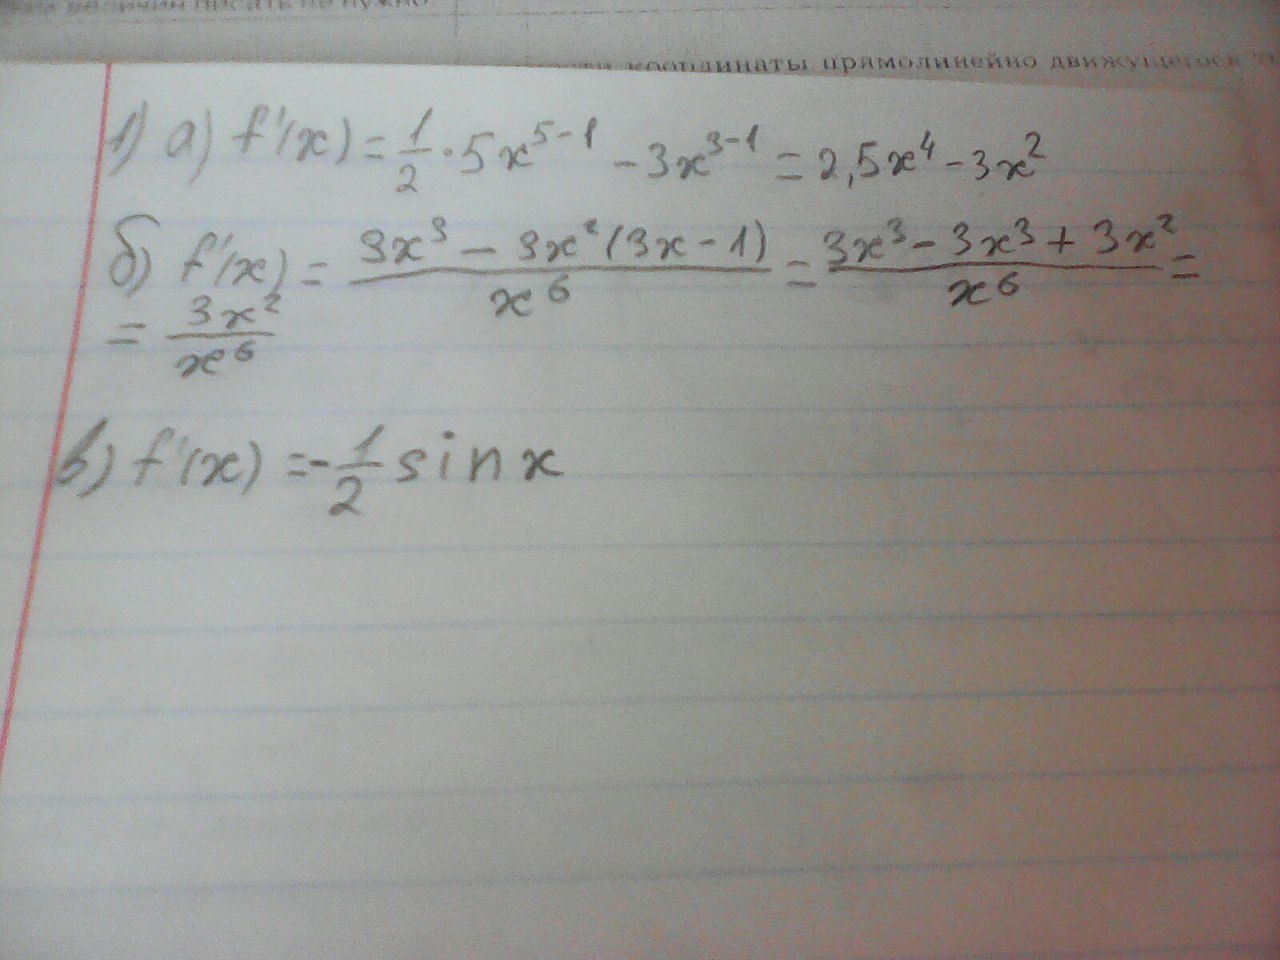 величин писать не нужно
координаты прямолинейно движущегося
1) а) f'(x) = 1/2 · 5x^{5-1} - 3x^{3-1} = 2,5x^4 - 3x^2
б) f'(x) = (3x^3 - 3x^2(3x - 1))/x^6 = (3x^3 - 3x^3 + 3x^2)/x^6 =
= 3x^2/x^6
в) f'(x) = -1/2 sin x